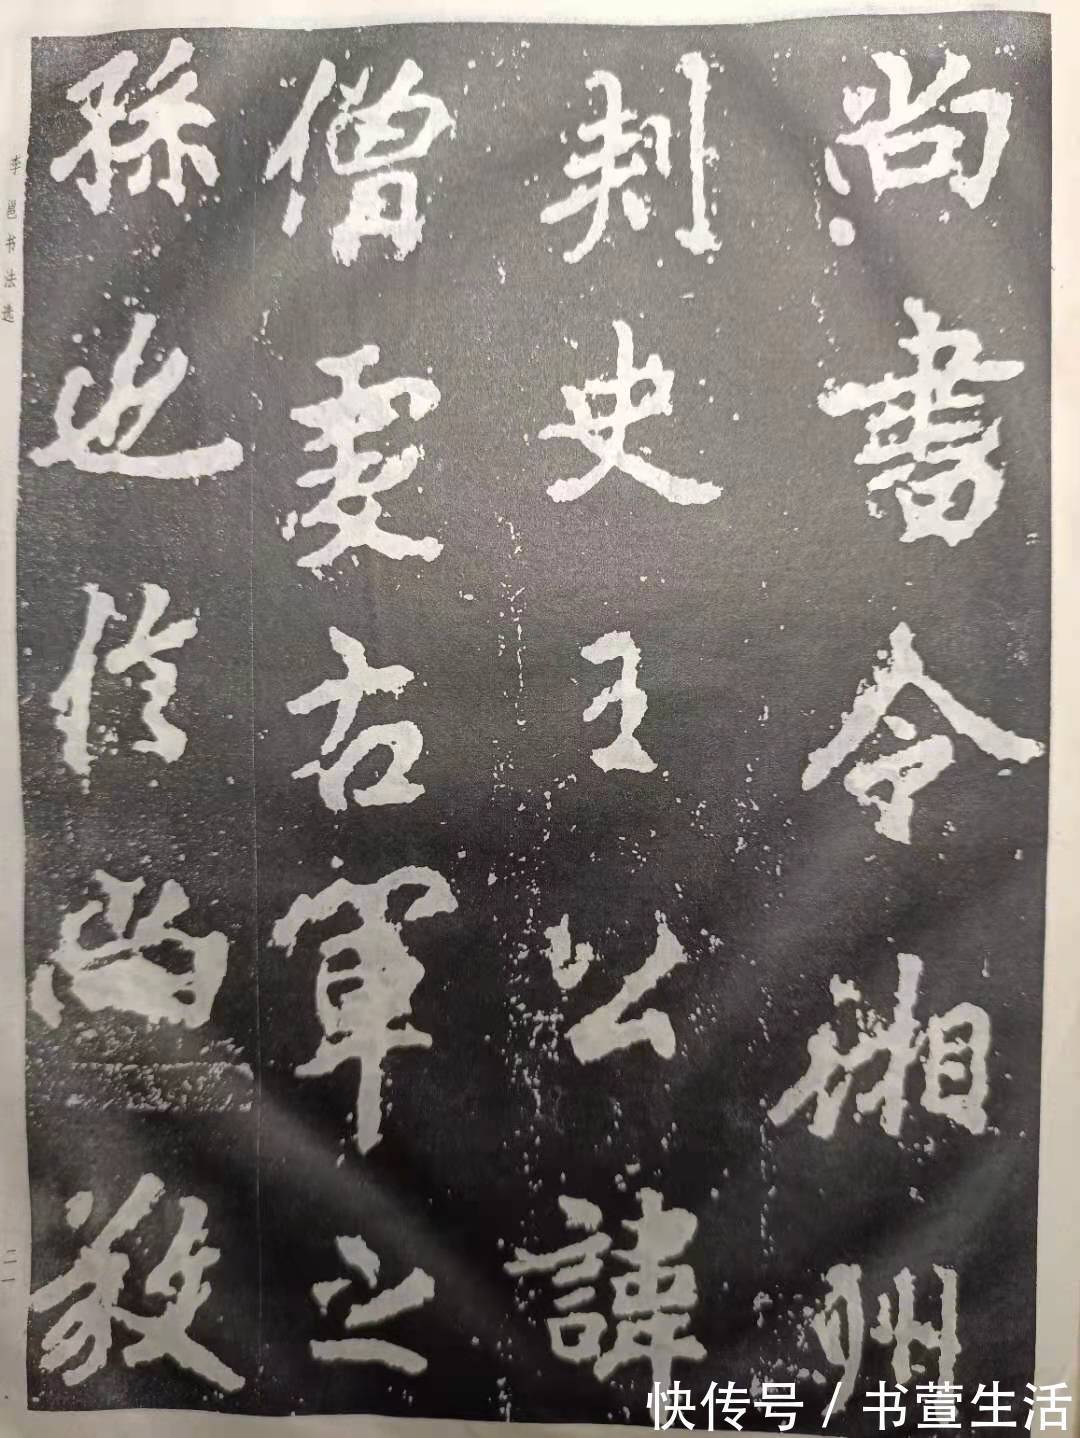 尚書令湘州
刺史王公諱
僧虔右軍之
孫也信尚敦
李邕书法选
二一
快传号 / 书萱生活